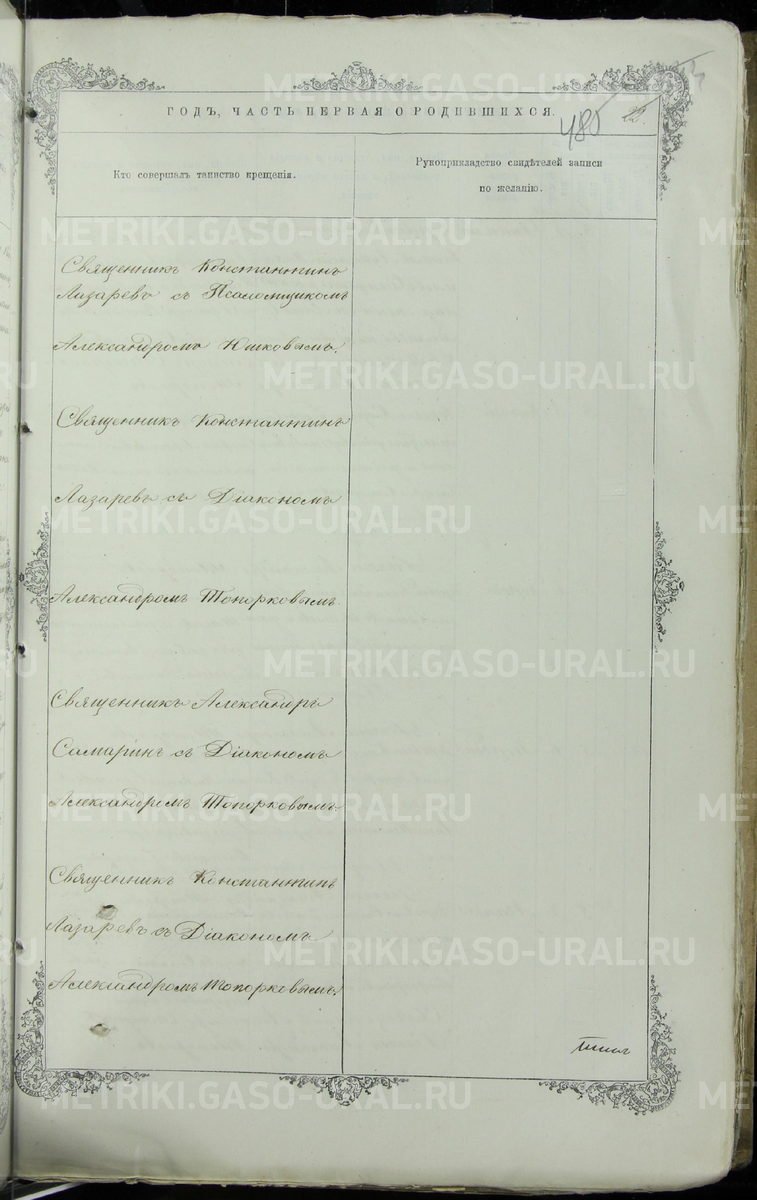 METRIKI.GASO-URAL.RU
ГОДЪ, ЧАСТЬ ПЕРВАЯ О РОДИВШИХСЯ.
480
Кто совершалъ таинство крещенія.
Рукоприкладство свидѣтелей записи
по желанію.
Священникъ Константинъ
Лазаревъ съ Псаломщикомъ
Александромъ Юшковымъ.
Священникъ Константинъ
Лазаревъ съ Діакономъ
Александромъ Топорковымъ.
Священникъ Александръ
Самаринъ съ Діакономъ
Александромъ Топорковымъ.
Священникъ Константинъ
Лазаревъ съ Діакономъ
Александромъ Топорковымъ.